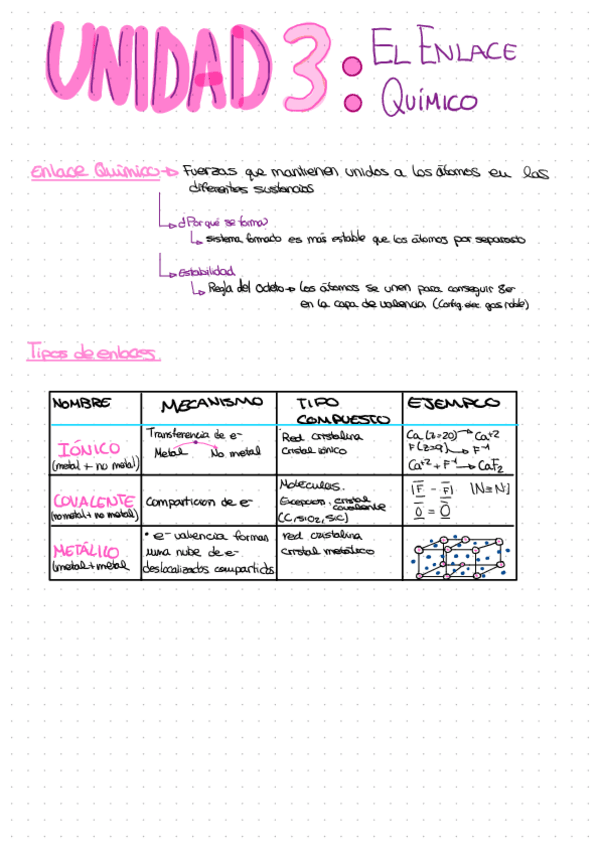 UNIDAD 3: EL ENLACE
QUÍMICO
Enlace Químico → Fuerzas que mantienen unidos a los átomos en las
diferentes sustancias
↳ ¿Por qué se forma?
↳ sistema formado es más estable que los átomos por separado
↳ Estabilidad
↳ Regla del Octeto → los átomos se unen para conseguir 8e-
en la capa de valencia (Config. elec. gas noble)
Tipos de enlaces
NOMBRE
MECANISMO
TIPO
COMPUESTO
EJEMPLO
IÓNICO
(metal + no metal)
Transferencia de e-
Metal No metal
Red cristalina
Cristal iónico
Ca (z=20) → Ca+2
F (z=9) → F-1
Ca+2 + F-1 → CaF2
COVALENTE
(no metal + no metal)
Compartición de e-
Moléculas.
Excepción, cristal
covalente
(C, SiO2, SiC)
|F - F| |N≡N|
O = O
METÁLICO
(metal + metal
• e- valencia forman
una nube de e-
deslocalizados compartidos
red cristalina
cristal metálico